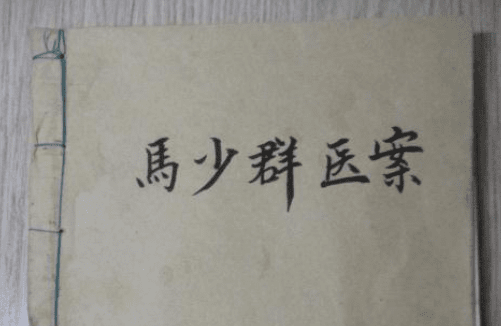 馬少群医案